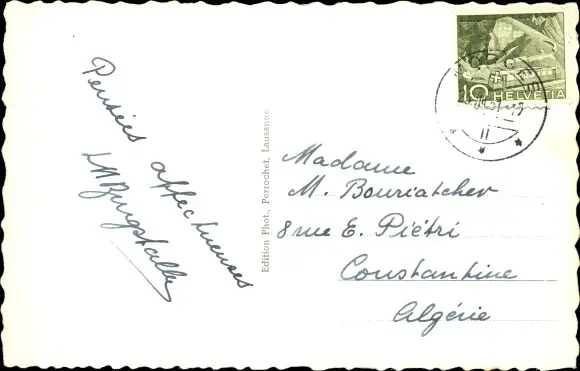 Pensées affectueuses
Edition Phot., Perrochet, Lausanne
10 HELVETIA
II
Madame
M. Bouriatcher
8 rue E. Piétri
Constantine
Algérie